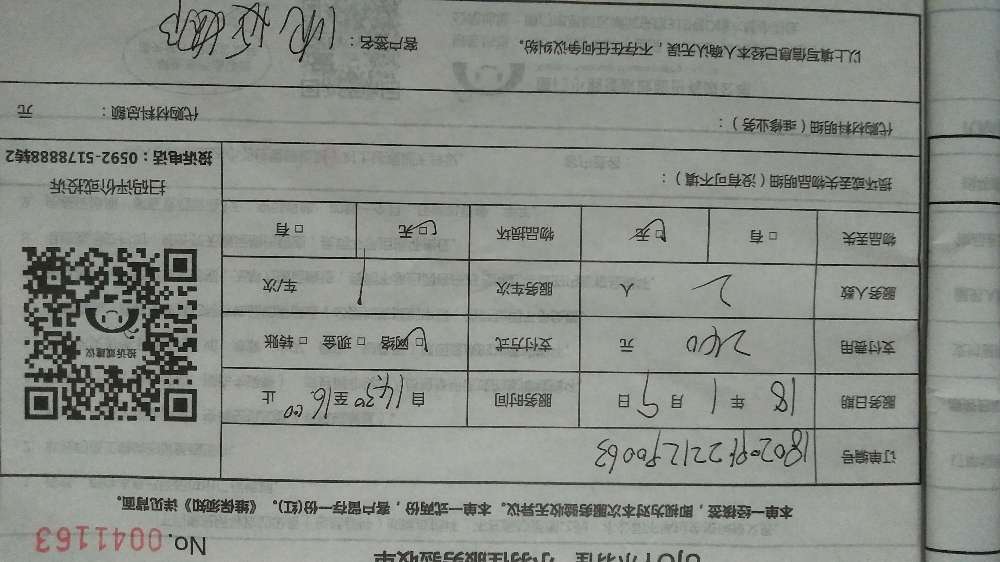 小羽佳服务验收单
No. 0041163
本单一经接签，即视为对本次服务验收无异议。本单一式两份，客户留存一份(红)。《维保须知》详见背面。
订单编号
服务日期 18 年 1 月 9 日 服务时间 自 14:30 至 16:00 止
支付费用 240 元 支付方式 □网络 □现金 □转账
服务人数 2 人 服务车次 1 车次
物品丢失 □有 □无 物品损坏 □无 □有
投诉或建议
扫码评价或投诉
投诉电话：0592-5178888转2
损坏或丢失物品明细（没有可不填）：
代购材料明细（维修业务）： 代购材料总额： 元
以上填写信息已经本人确认无误，不存在任何争议纠纷。 客户签名：